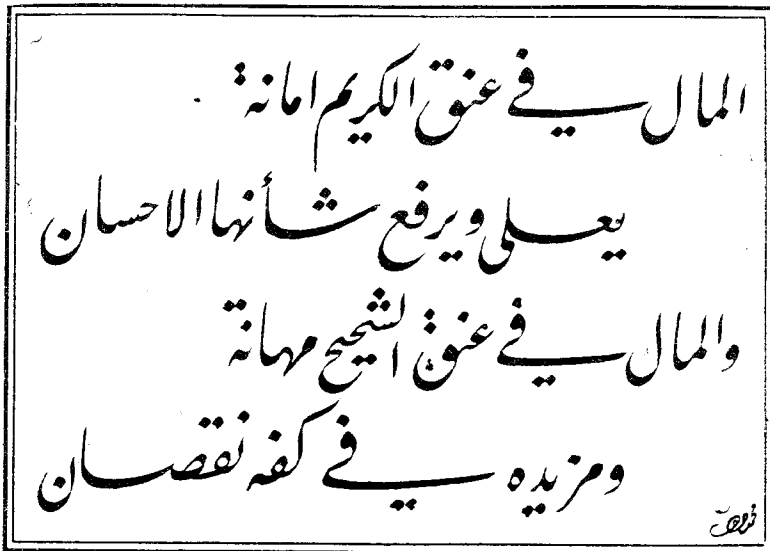 المال في عنق الكريم امانة
يعلي ويرفع شأنها الاحسان
والمال في عنق الشحيح مهانة
ومزيده في كفه نقصان